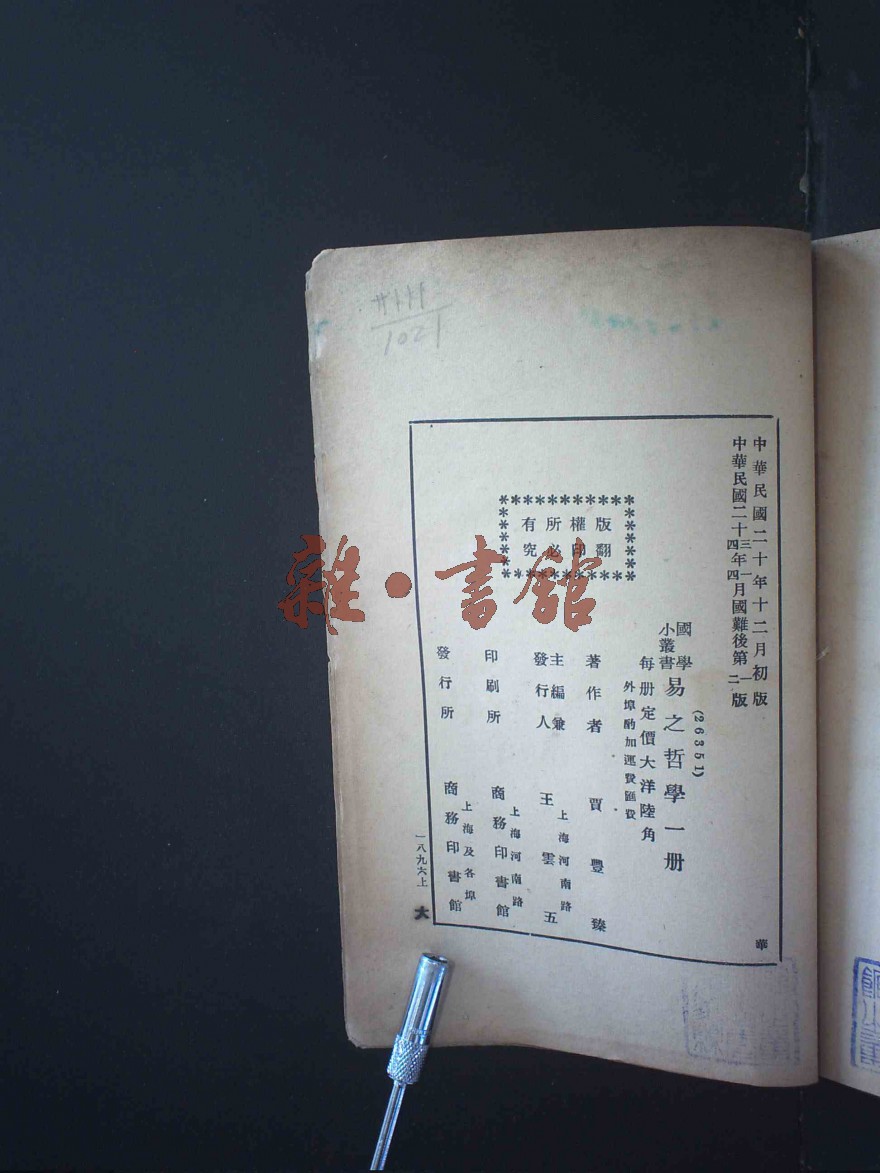 中華民國二十年十二月初版
中華民國二十三年一月國難後第一版
四年四月 二
(26351)
國學小叢書 易之哲學一册
每册定價大洋陸角
外埠酌加運費匯費
版權所有
翻印必究
著作者 賈豐臻
主編兼發行人 王雲五
上海河南路
印刷所 商務印書館
上海河南路
發行所 商務印書館
上海及各埠
一八九六上
大
華
1021
雜·書館